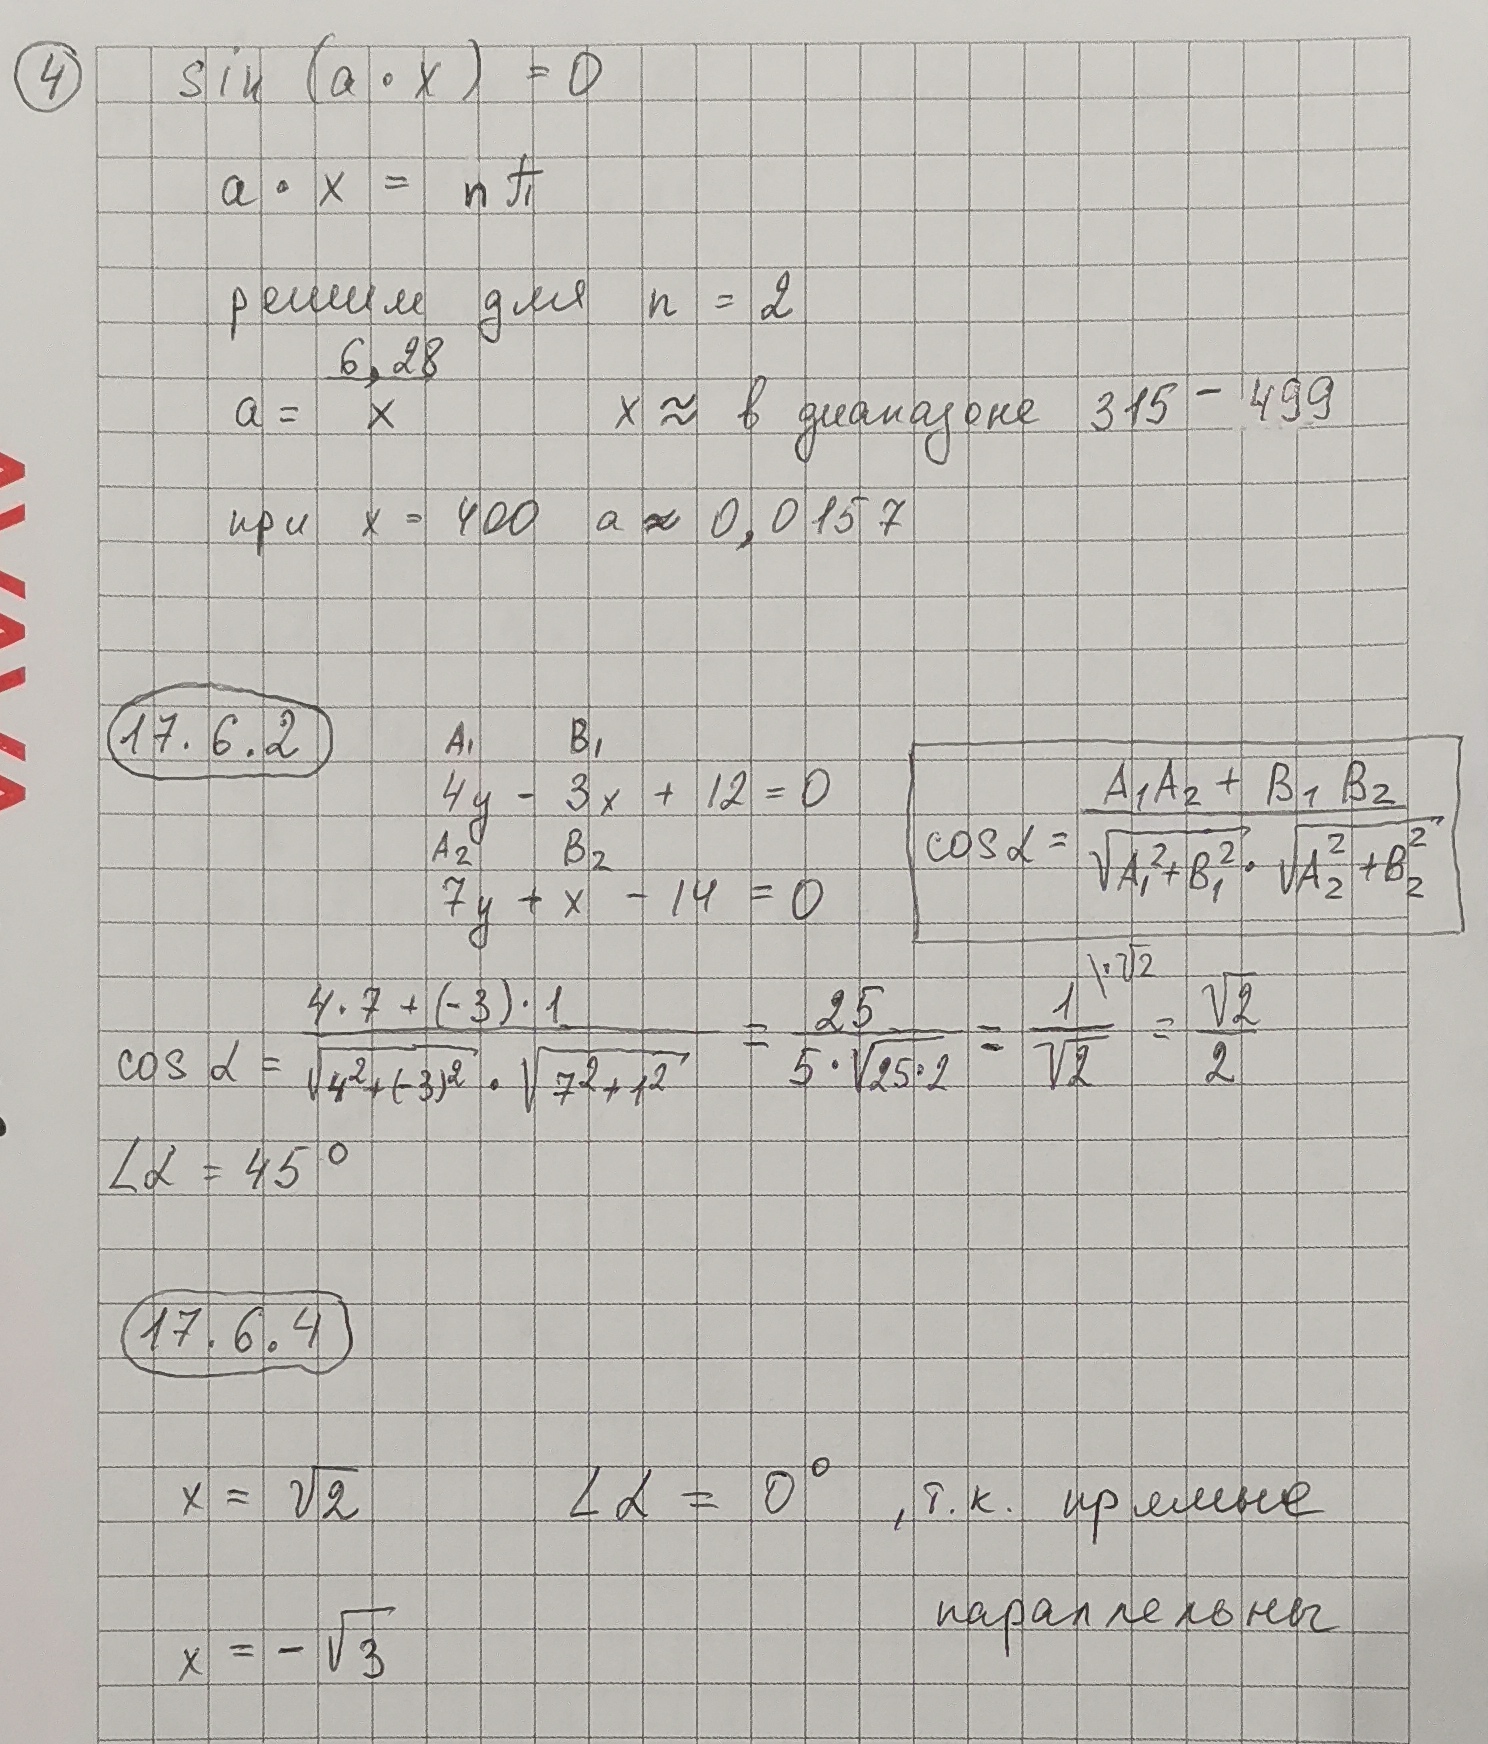 4
sin (a · x) = 0
a · x = nπ
решим для n = 2
a = 6,28 / x x ≈ в диапазоне 315 - 499
при x = 400 a ≈ 0,0157
17.6.2
A₁ B₁
4y - 3x + 12 = 0
A₂ B₂
7y + x - 14 = 0
cos α = (A₁A₂ + B₁B₂) / (√(A₁² + B₁²) · √(A₂² + B₂²))
cos α = (4·7 + (-3)·1) / (√(4² + (-3)²) · √(7² + 1²)) = 25 / (5·√(25·2)) = 1 / √2 \·√2 = √2 / 2
∠α = 45°
17.6.4
x = √2 ∠α = 0° , т.к. прямые
параллельны
x = -√3